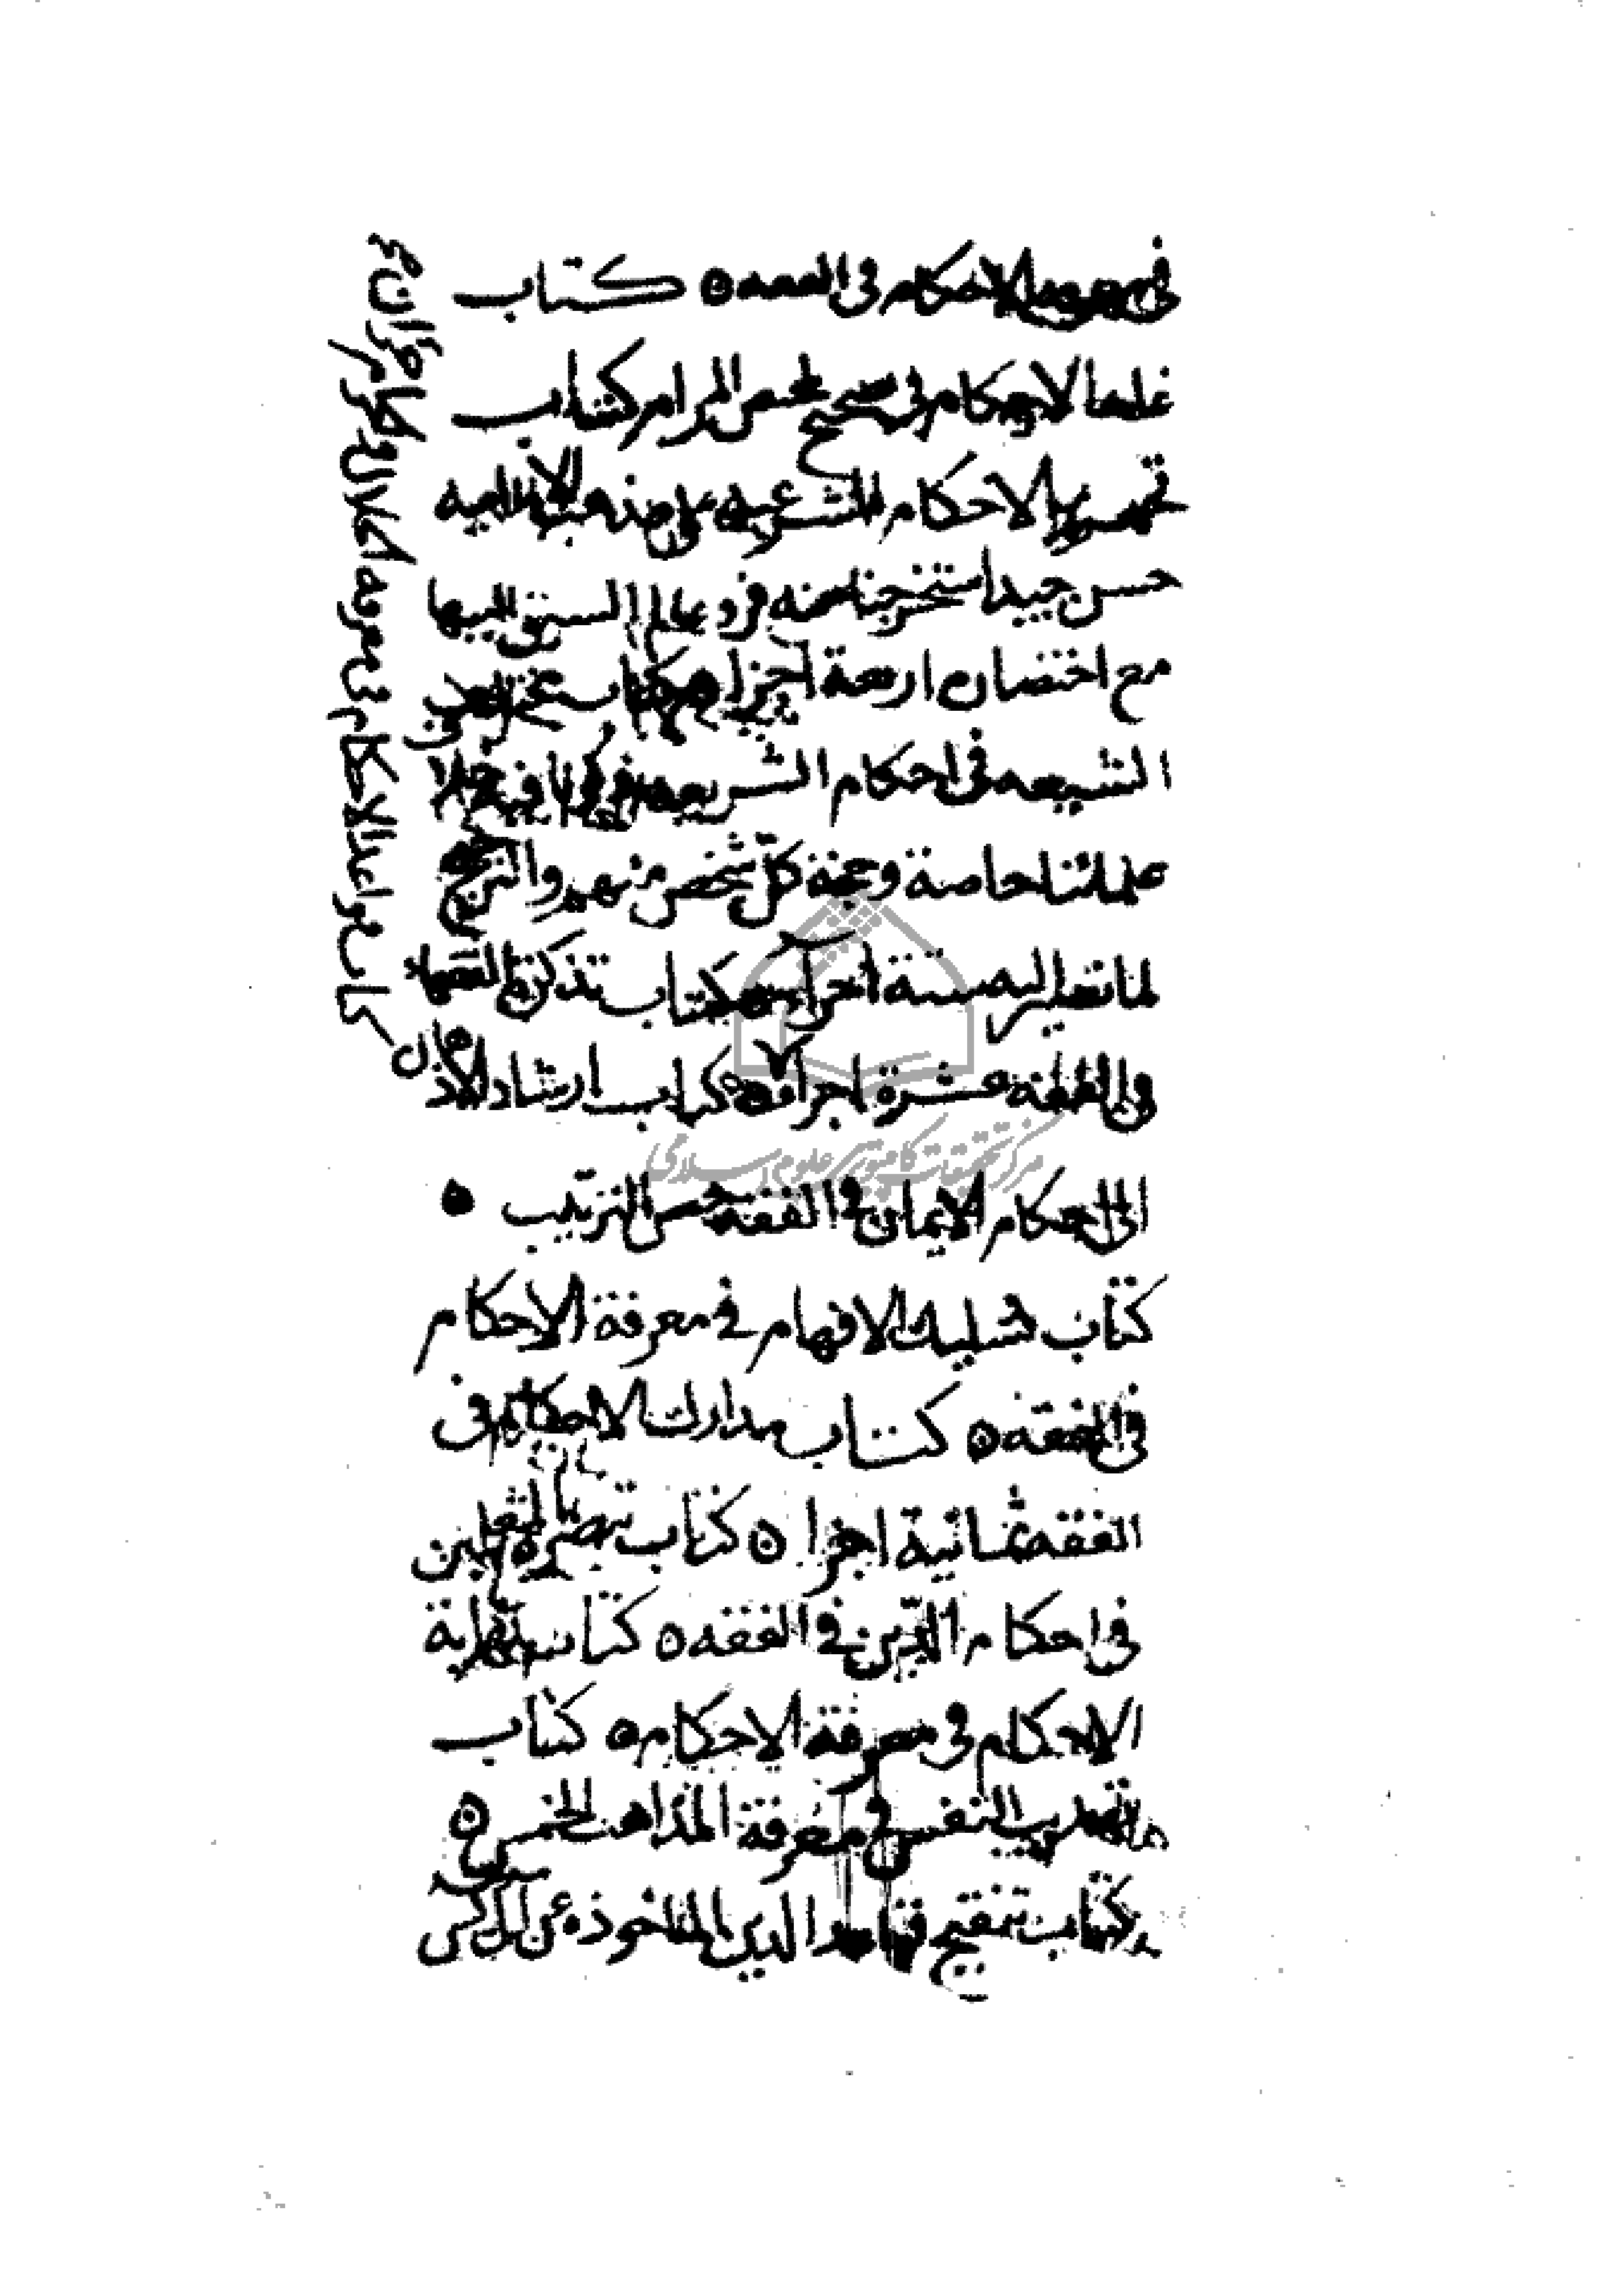 الاحكام في الفقه ه كتاب
غاية الاحكام في تصحيح تلخيص المرام كتاب
تحرير الاحكام الشرعية على مذهب الامامية
حسن جيد استخرجنا منه فروعا لم نسبق اليها
مع اختصاره اربعة اجزا ه كتاب مختلف
الشيعه في احكام الشريعه ذكرنا فيه خلاف
علمائنا خاصة وحجة كل شخص منهم والترجيح
لما نصير اليه ستة اجزا ه كتاب تذكرة الفقهاء
في الفقه عشرة اجزا ه كتاب ارشاد الاذهان
الى احكام الايمان في الفقه حسن الترتيب ه
كتاب تسليك الافهام في معرفة الاحكام
في الفقه ه كتاب مدارك الاحكام في
الفقه ثمانية اجزا ه كتاب تبصرة المتعلمين
في احكام الدين في الفقه ه كتاب نهاية
الاحكام في معرفة الاحكام ه كتاب
تهذيب النفس في معرفة المذاهب الخمس ه
كتاب تنقيح قواعد الدين الماخوذه عن آل يس
كتاب قواعد الاحكام في معرفة الحلال والحرام جزآن
مركز تحقيقات كامپيوتری علوم اسلامی